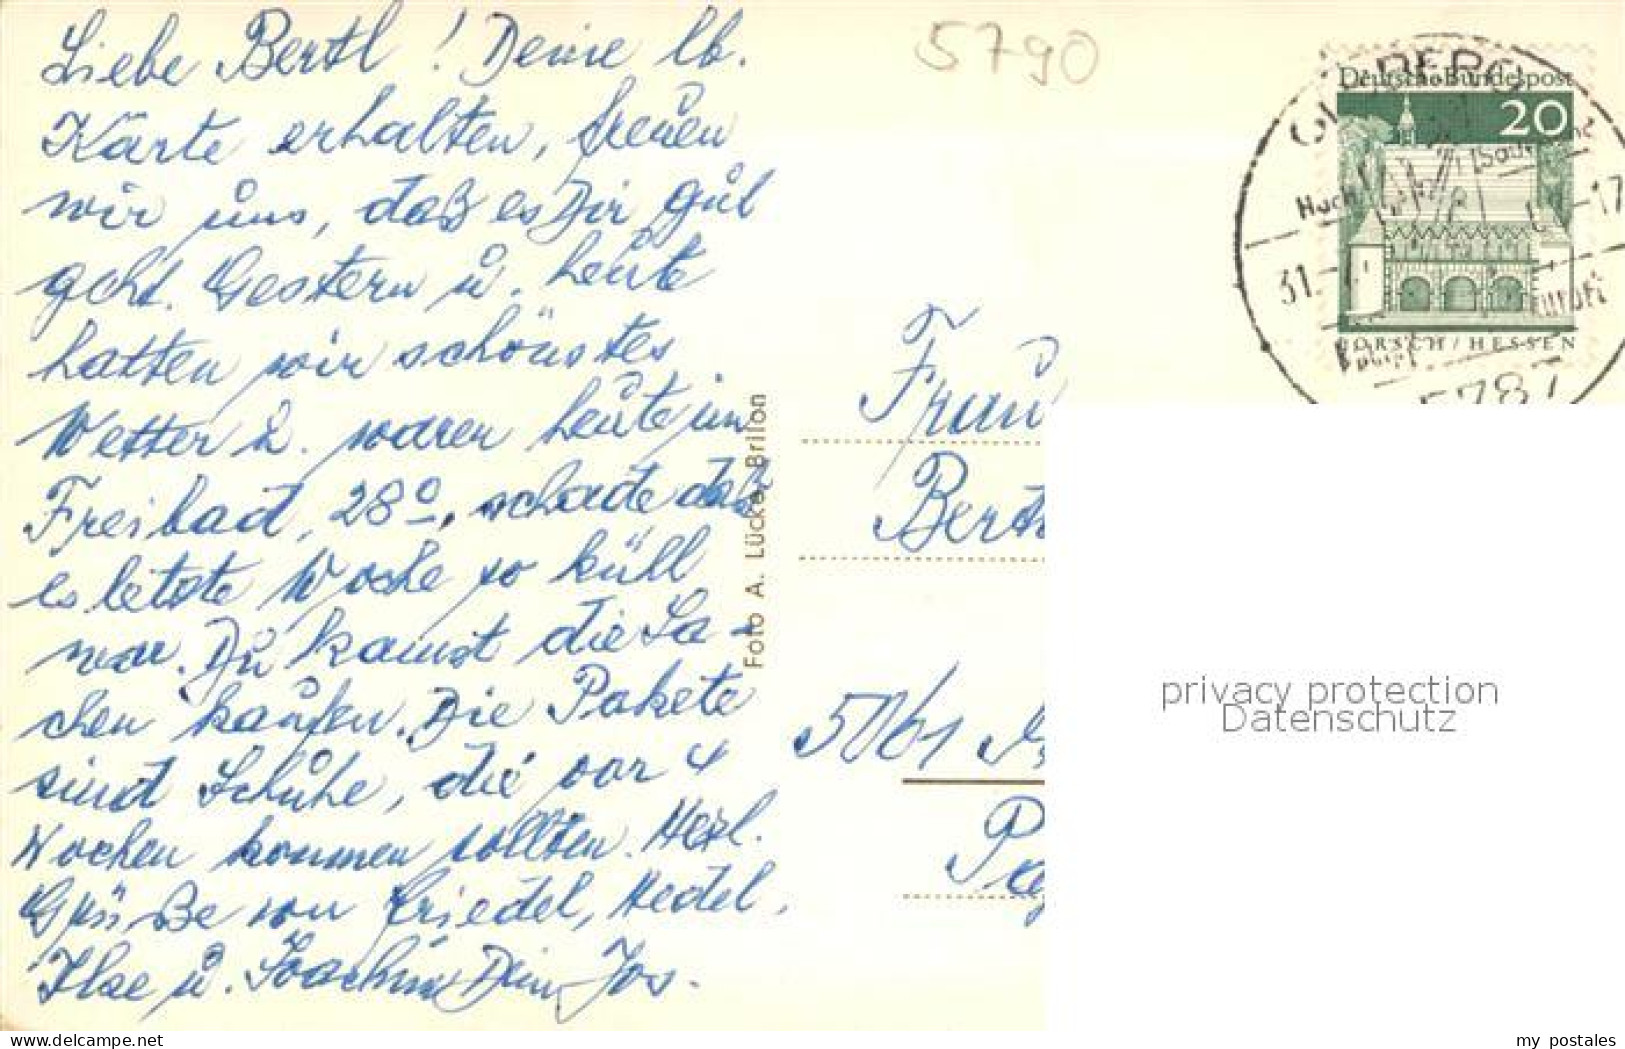 Liebe Bertl! Deine lb.
Karte erhalten, freuen
wir uns, daß es Dir gut
geht. Gestern u. heute
hatten wir schönstes
Wetter u. waren heute im
Freibad, 28°, schade daß
es letzte Woche so kühl
war. Du kannst die Sa-
chen kaufen. Die Pakete
sind Schuhe, die vor 4
Wochen kommen sollten. Herzl.
Grüße von Friedel, Hedel,
Ilse u. Joachim Dein Jos.
Foto A. Lücke, Brilon
5790
Deutsche Bundespost
20
LORSCH / HESSEN
OLSBERG
(Sauerland
31.
-17
5787
Frau
Bert
5061
privacy protection
Datenschutz
delcampe.net
my_postales